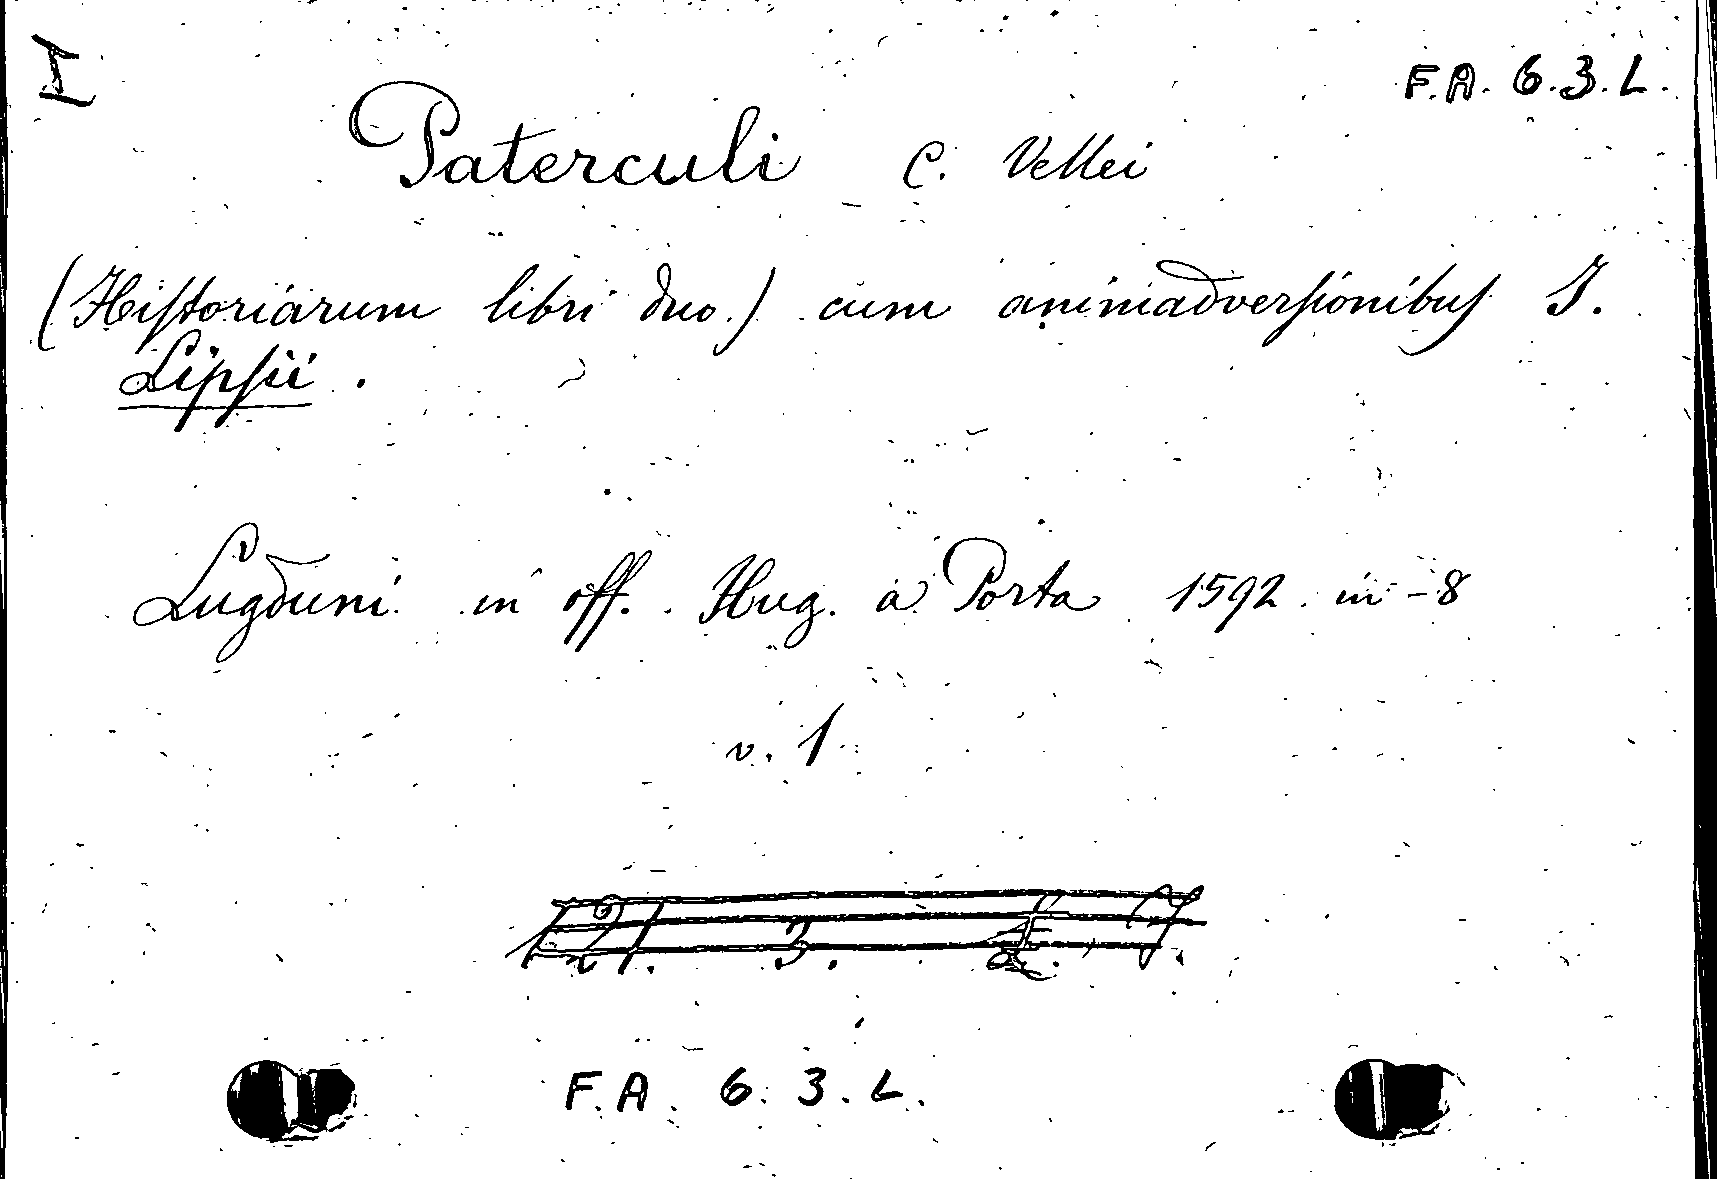 I
F.A. 6.3.L.
Paterculi C. Vellei
(Hiſtoriarum libri duo.) cum animadverſionibuſ J.
Lipſii.
Lugduni in off. Hug. a Porta 1592 in-8
v. 1
F.A. 6.3.L.